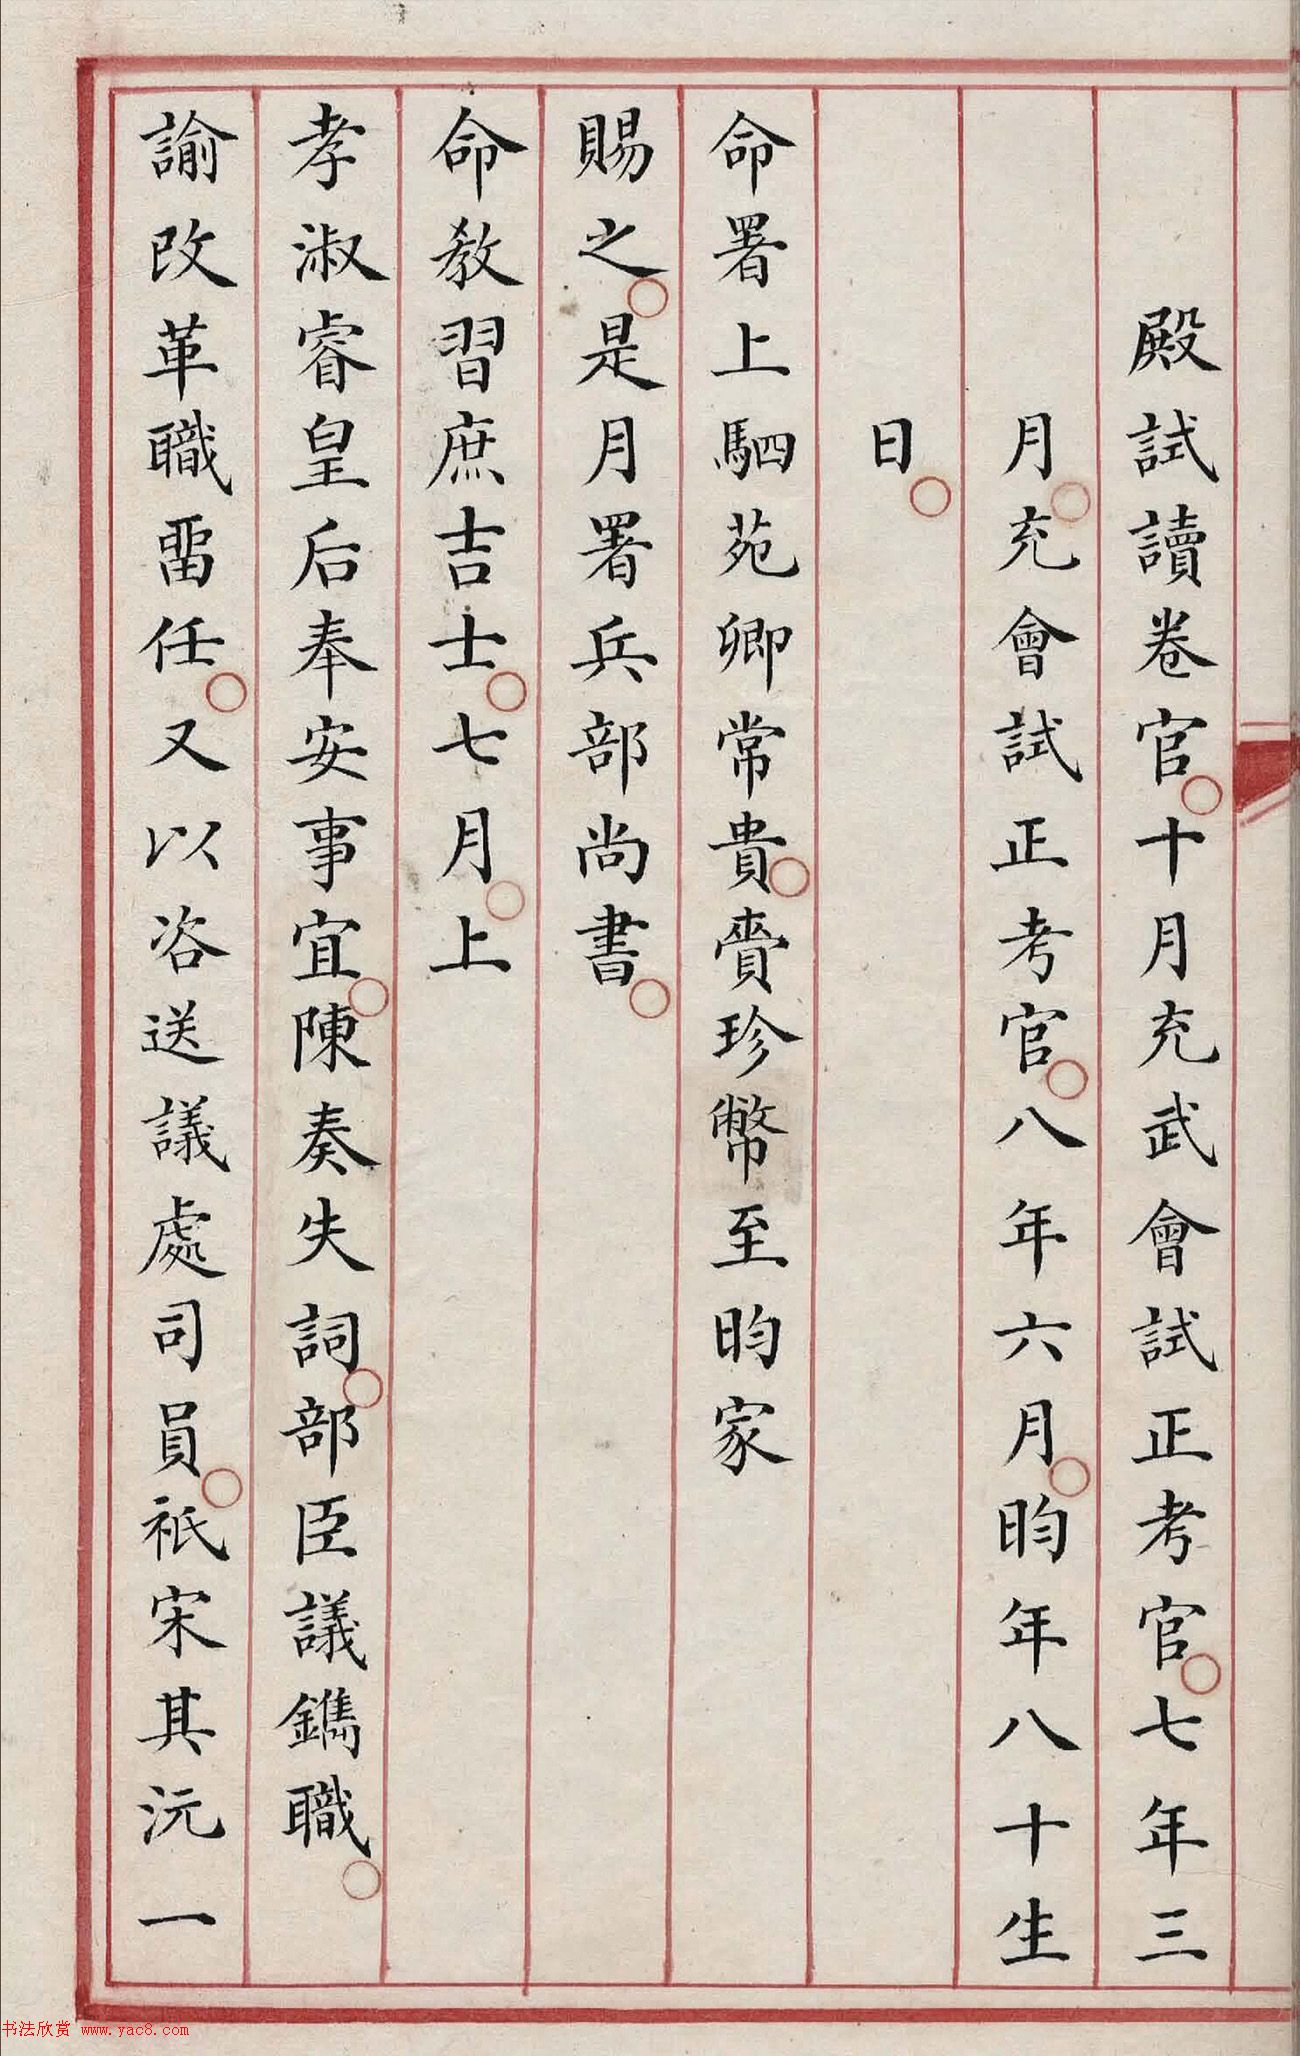 殿試讀卷官十月充武會試正考官七年三
月充會試正考官八年六月昀年八十生
日
命署上駟苑卿常貴賫珍幣至昀家
賜之是月署兵部尚書
命教習庶吉士七月上
孝淑睿皇后奉安事宜陳奏失詞部臣議鐫職
諭改革職畱任又以咨送議處司員祇宋其沅一
书法欣赏 www.yac8.com